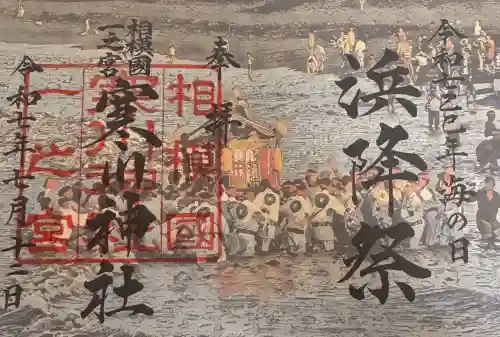 令和七乙巳年海の日
浜降祭
奉拝
相模國
一之宮
寒川神社
令和七年七月十二日
相模國
寒川神社
一之宮